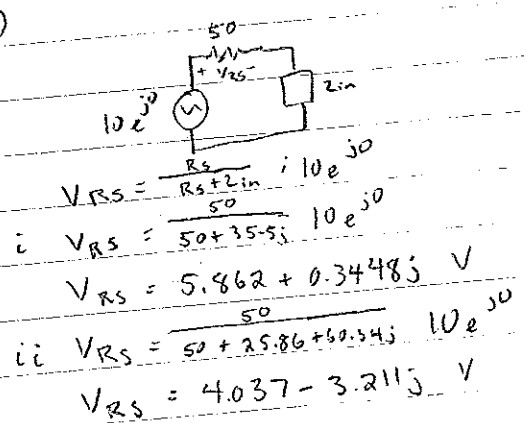 )
50
+ VRS -
10 e^j0
Zin
VRS = Rs / (Rs + Zin) ; 10 e^j0
i VRS = 50 / (50 + 35-5j) 10 e^j0
VRS = 5.862 + 0.3448j V
ii VRS = 50 / (50 + 25.86 + 60.34j) 10 e^j0
VRS = 4.037 - 3.211j V